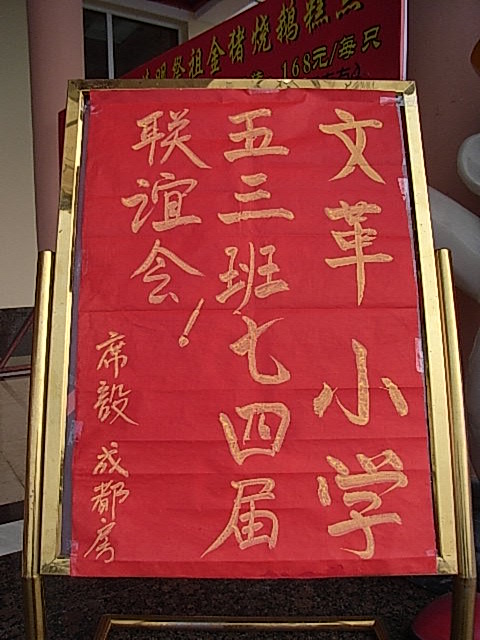 祭祖金猪烧鹅糕点
168元/每只
文革小学
五三班七四届
联谊会！
席設 成都房